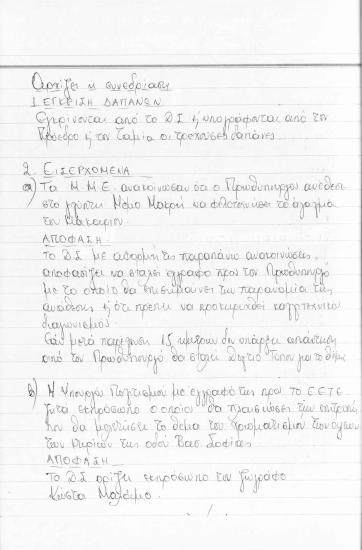 Αρχίζει η συνεδρίαση
1. ΕΓΚΡΙΣΗ ΔΑΠΑΝΩΝ
Εγκρίνονται από το Δ.Σ. & υπογράφονται από τον
Πρόεδρο & τον Ταμία οι τρέχουσες δαπάνες
2. ΕΙΣΕΡΧΟΜΕΝΑ
α) Τα Μ.Μ.Ε. ανακοίνωσαν ότι ο Πρωθυπουργός ανέθεσε
στο γλύπτη Μέμο Μακρή να φιλοτεχνήσει το άγαλμα
του Μακαρίου.
ΑΠΟΦΑΣΗ
Το Δ.Σ. με αφορμή τις παραπάνω ανακοινώσεις,
αποφασίζει να σταλεί έγγραφο προς τον Πρωθυπουργό
με το οποίο θα επισημαίνει την παρανομία της
ανάθεσης & ότι πρέπει να προκηρυχθεί καλλιτεχνικός
διαγωνισμός.
Εάν μετά παρέλευση 15 ημερών δεν υπάρξει απάντηση
από τον Πρωθυπουργό θα σταλεί Δελτίο Τύπου για το θέμα
β) Η Υπουργός Πολιτισμού με έγγραφό της προς το Ε.Ε.Τ.Ε.
ζητά εκπρόσωπο ο οποίος θα πλαισιώσει την επιτροπή
που θα μελετήσει το θέμα του χρωματισμού των όψεων
των κτιρίων της οδού Βασ. Σοφίας.
ΑΠΟΦΑΣΗ
Το Δ.Σ. ορίζει εκπρόσωπο τον ζωγράφο
Κώστα
./.